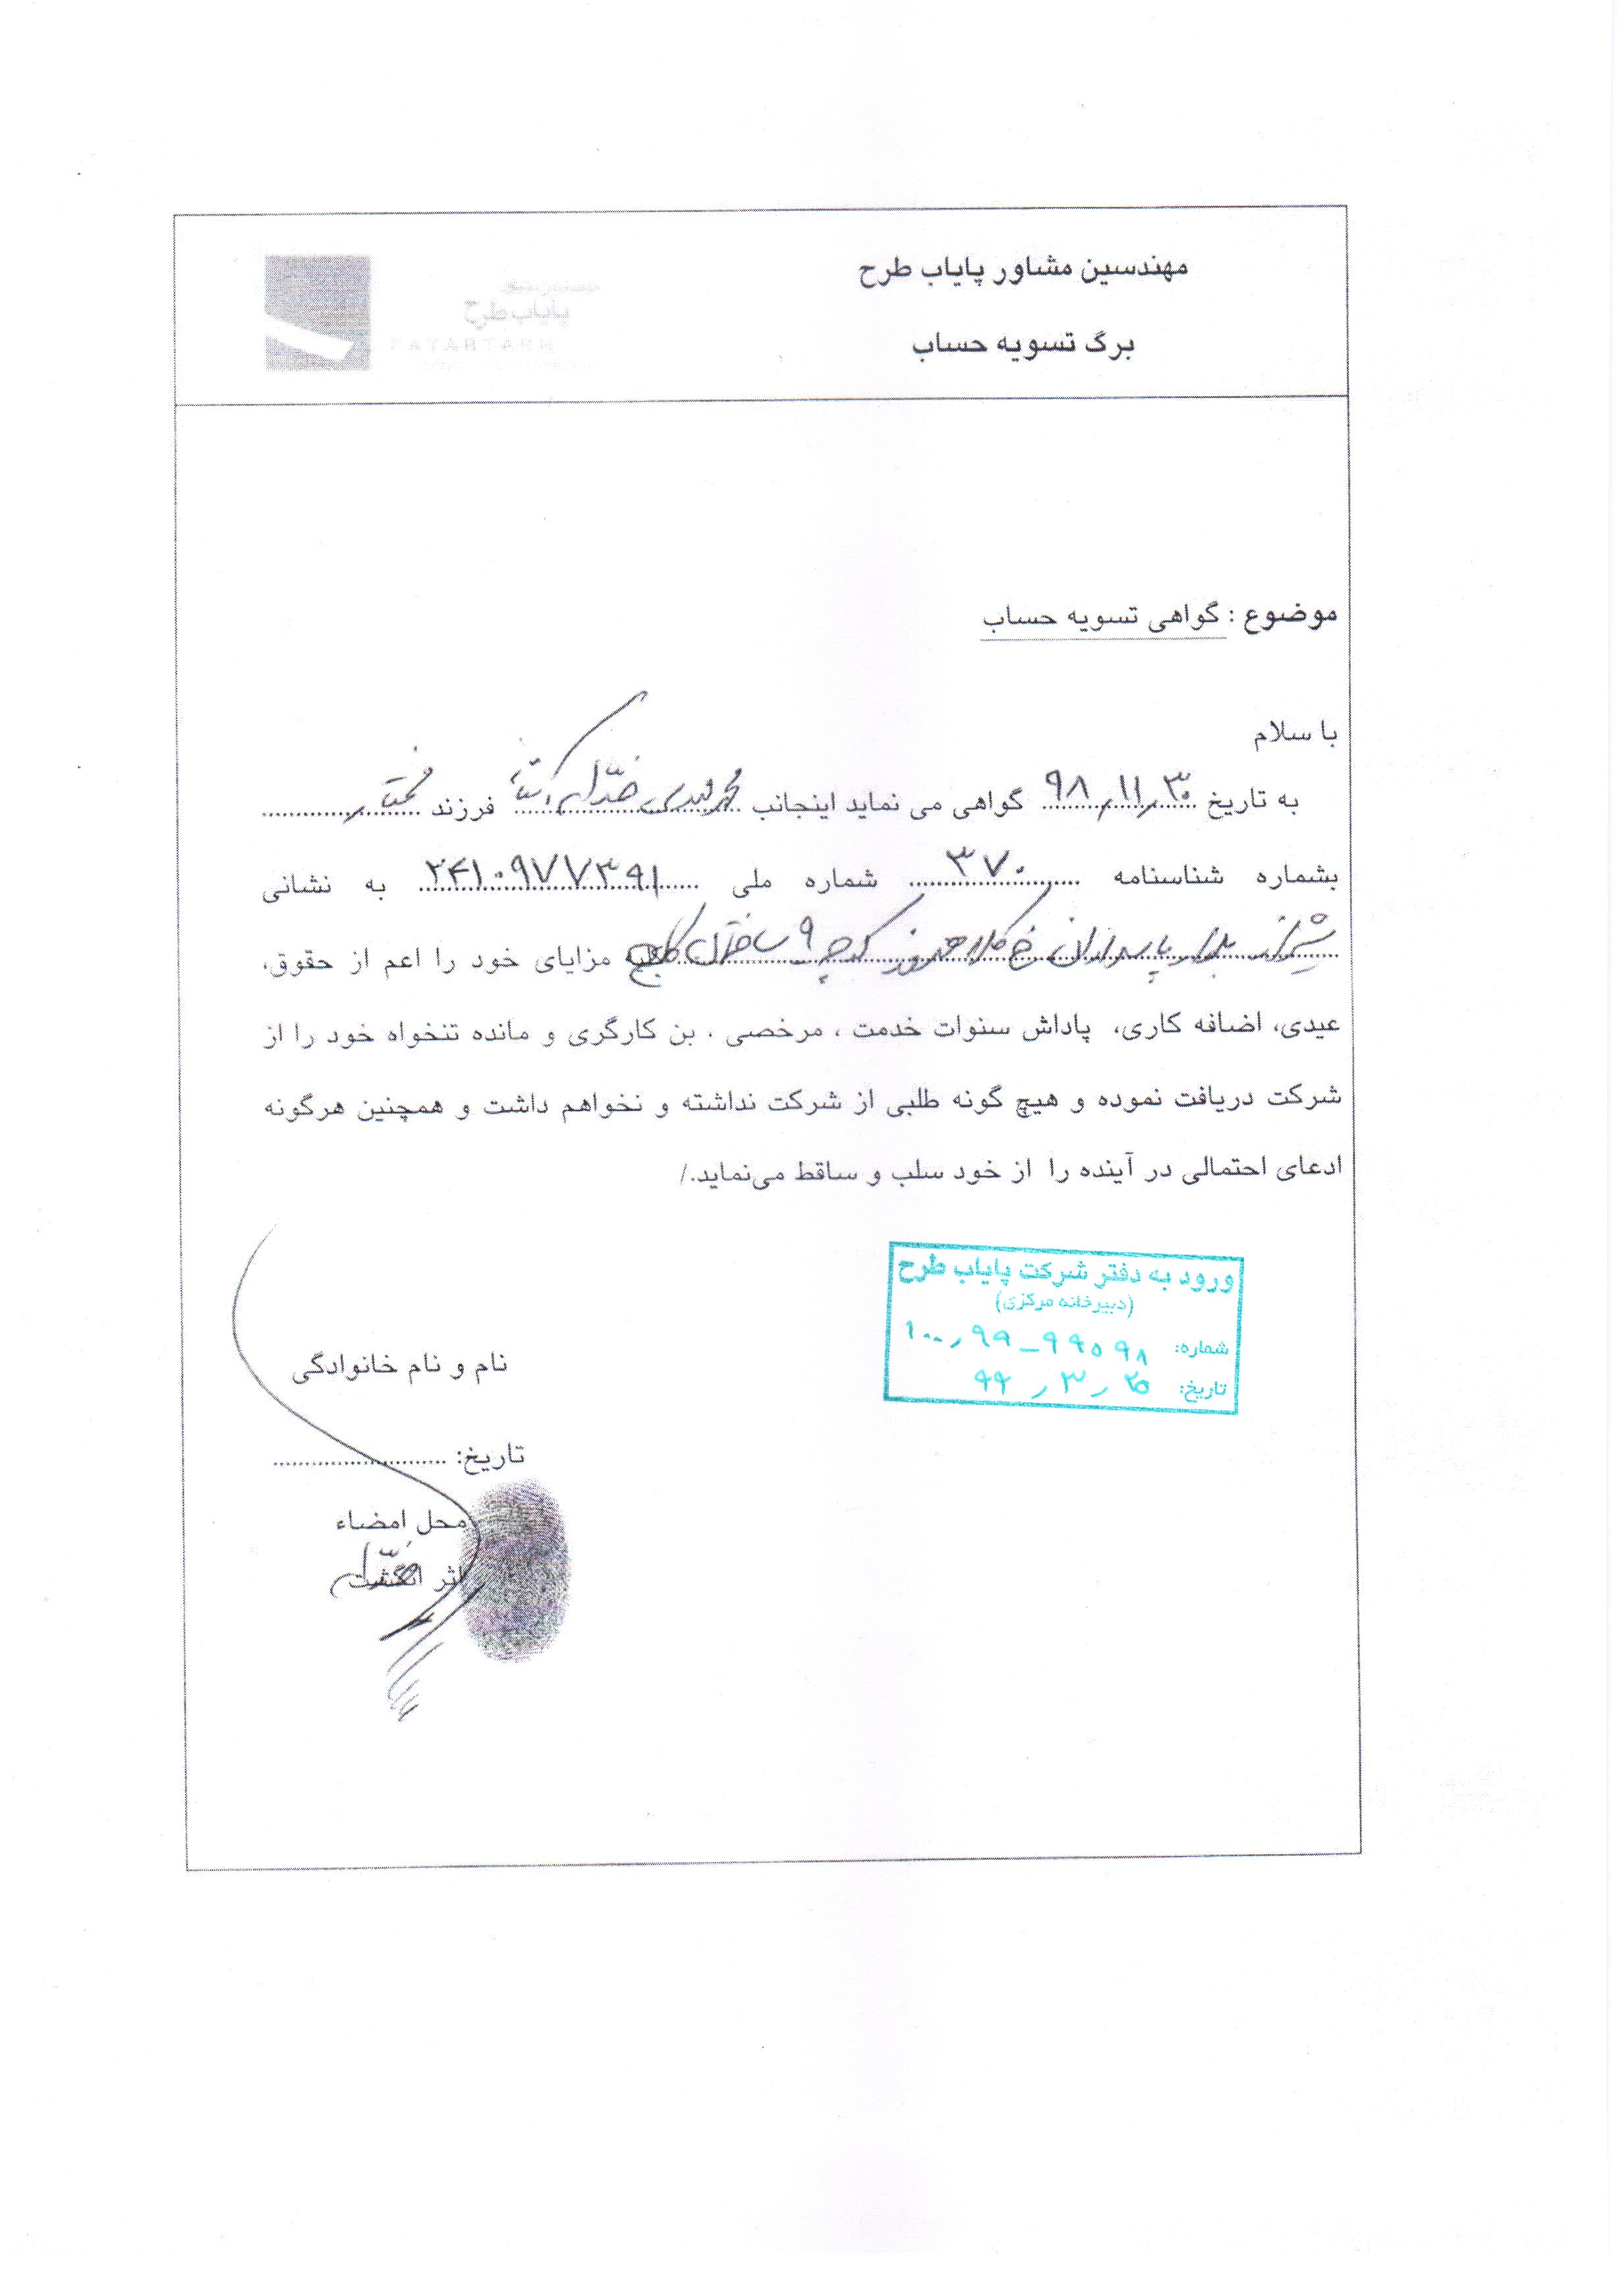 مهندسین مشاور پایاب طرح
پایاب طرح
برگ تسویه حساب
موضوع : گواهی تسویه حساب
با سلام
به تاریخ ۹۸/۱۱/۳۰ گواهی می نماید اینجانب محمد مهدی فرزند مختار
بشماره شناسنامه ۳۷۰ شماره ملی ۲۴۱۰۹۷۷۳۹۱ به نشانی
شیراز بلوار پاسداران خ کوچه ۹ ساختمان مزایای خود را اعم از حقوق،
عیدی، اضافه کاری، پاداش سنوات خدمت ، مرخصی ، بن کارگری و مانده تنخواه خود را از
شرکت دریافت نموده و هیچ گونه طلبی از شرکت نداشته و نخواهم داشت و همچنین هرگونه
ادعای احتمالی در آینده را از خود سلب و ساقط می‌نماید./
ورود به دفتر شرکت پایاب طرح
(دبیرخانه مرکزی)
شماره: ۱۰۰/۹۹-۹۹۵۹۸
تاریخ: ۹۹/۳/۲۵
نام و نام خانوادگی
تاریخ:
محل امضاء
اثر انگشت